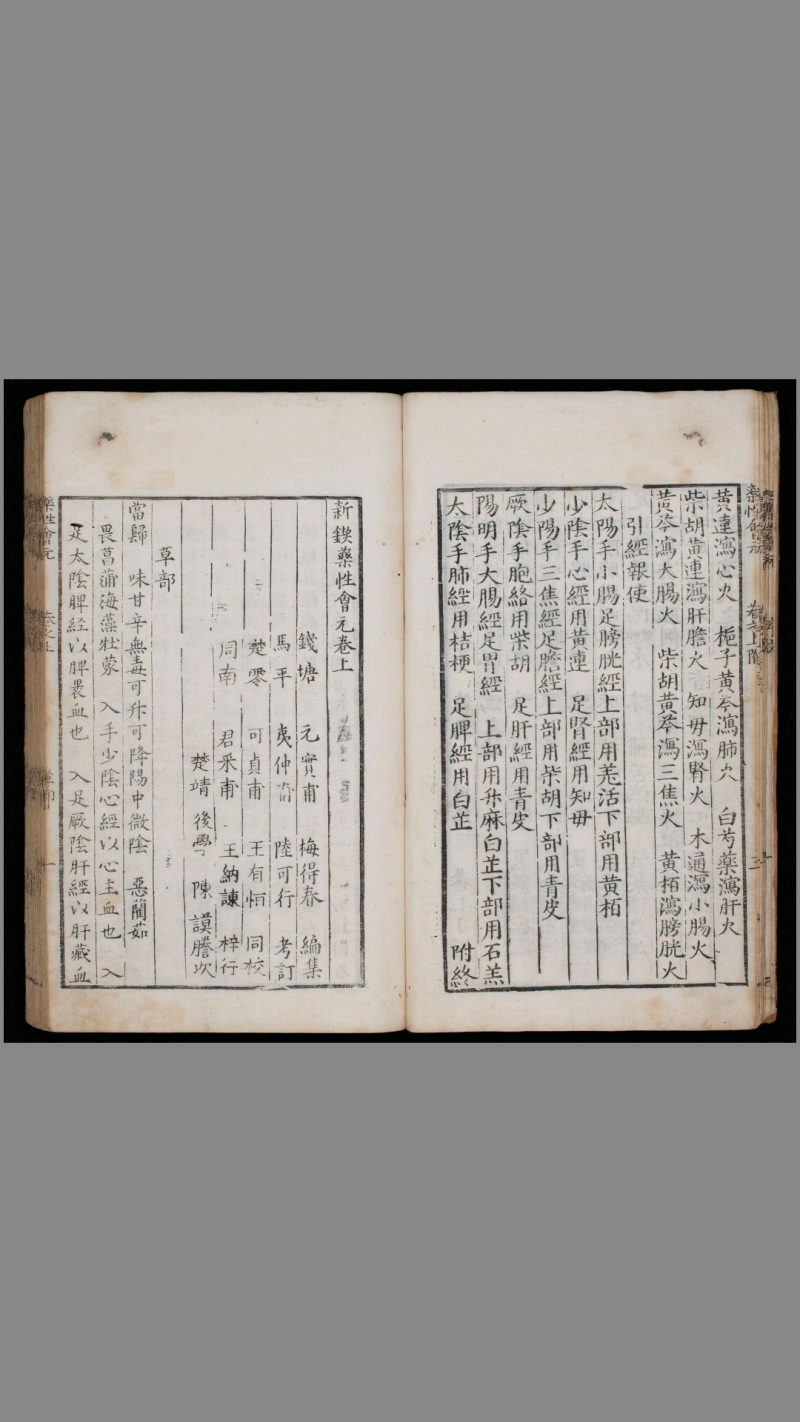 黄連瀉心火　梔子黄芩瀉肺火　白芍藥瀉肝火
柴胡黄連瀉肝膽火　知毋瀉腎火　木通瀉小腸火
黄芩瀉大腸火　柴胡黄芩瀉三焦火　黄栢瀉膀胱火
引經報使
太陽手小腸足膀胱經上部用羌活下部用黄栢
少陰手心經用黄連　足腎經用知毋
少陽手三焦經足膽經上部用柴胡下部用青皮
厥陰手胞絡用柴胡　足肝經用青皮
陽明手大腸經足胃經　上部用升麻白芷下部用石羔
太陰手肺經用桔梗　足脾經用白芷　附終
新鍥藥性會元卷上
錢塘　元實甫　梅得春　編集
馬平　夷仲　陸可行　考訂
楚零　可貞甫　王有恒　同校
周南　君采甫　王納諫　梓行
楚靖　後學　陳謨謄次
草部
當歸　味甘辛無毒可升可降陽中微陰　惡藺茹
畏菖蒲海藻牡蒙　入手少陰心經以心主血也　入
足太陰脾經以脾裹血也　入足厥陰肝經以肝藏血
藥性會元　卷之上　草部　一